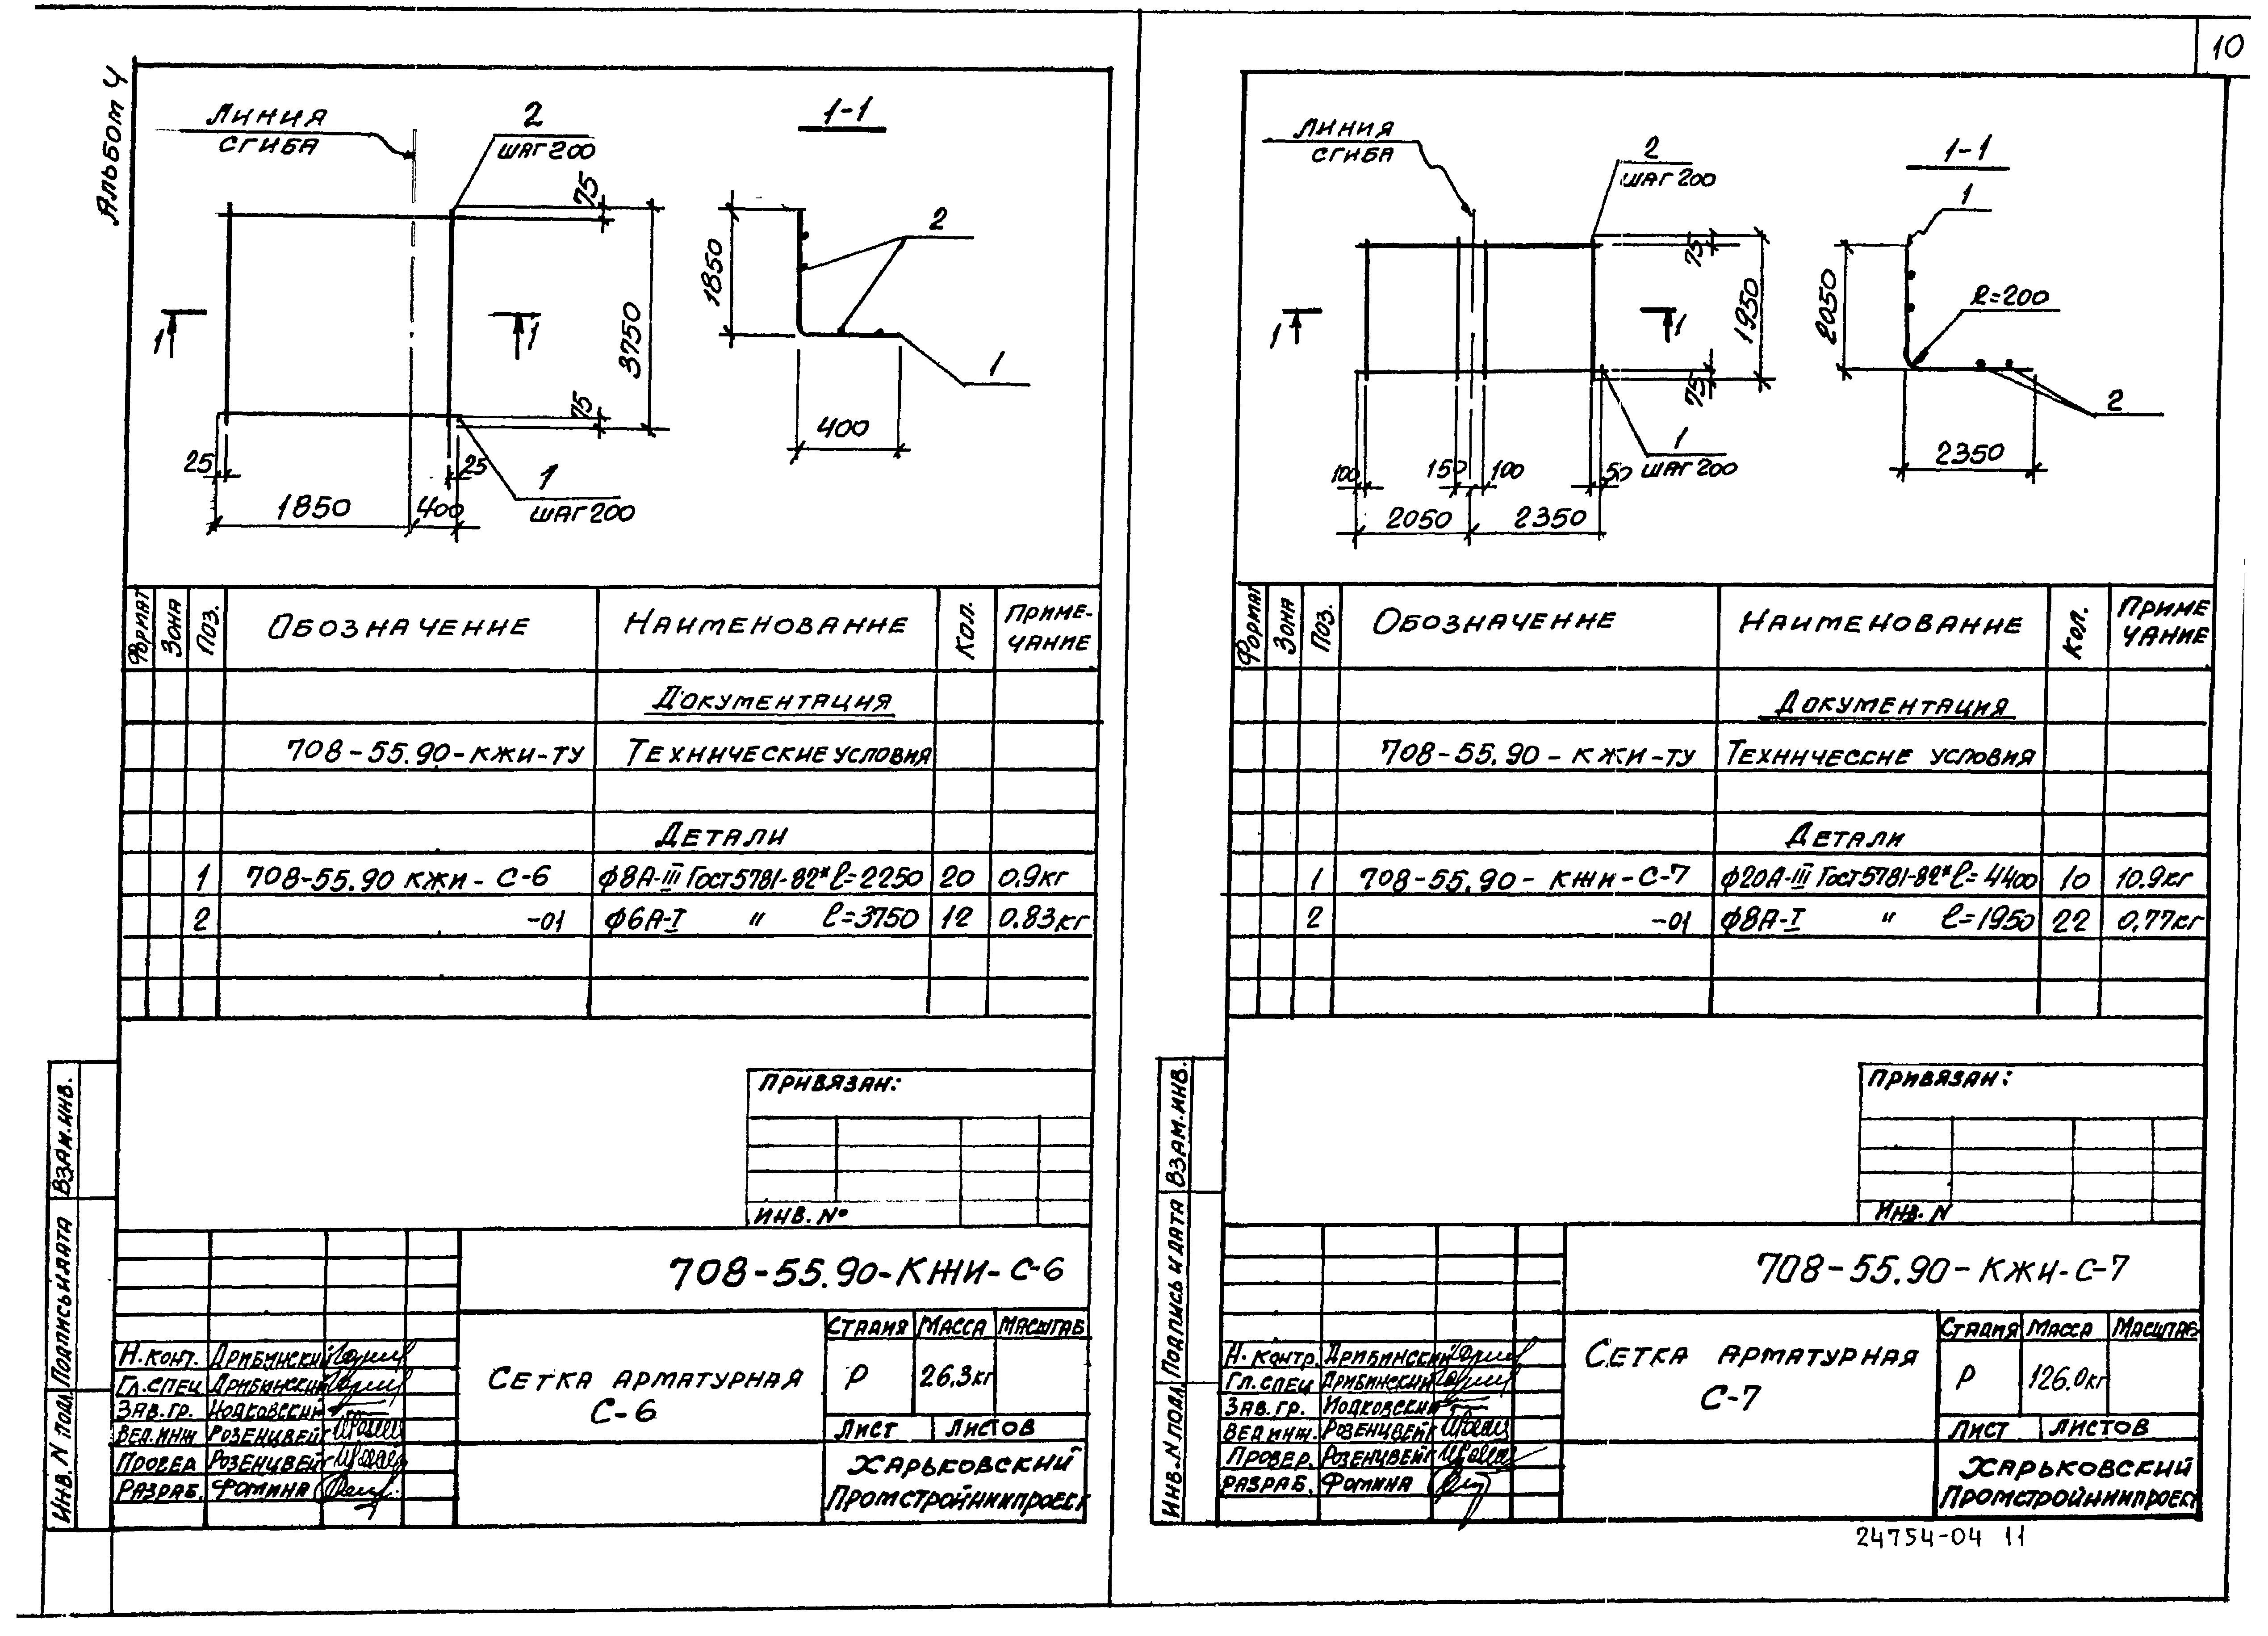 10
Альбом 4
Линия
сгиба
2
шаг 200
1-1
75
3750
75
1
1
25
25
1850
400
1
шаг 200
1850
2
1
400
Формат
Зона
Поз.
Обозначение
Наименование
Кол.
Приме-
чание
Документация
708-55.90-КЖИ-ТУ Технические условия
Детали
1 708-55.90 КЖИ-С-6 ф8А-III Гост5781-82* ℓ=2250 20 0.9кг
2 -01 ф6А-I " ℓ=3750 12 0.83кг
Привязан:
Инв. №
Взам.инв.
Подпись и дата
Инв. N подл
708-55.90-КЖИ-С-6
Стадия Масса Масштаб
Н.конт. Дрибинский
Гл.спец Дрибинский
Зав.гр. Иодковский
Вед.инж Розенцвейг
Провер Розенцвейг
Разраб. Фомина
Сетка арматурная
С-6
Р 26.3кг
Лист Листов
Харьковский
Промстройниипроект
Линия
сгиба
2
шаг 200
1-1
75
1950
75
1
1
100
150
100
50
2050
2350
1
шаг 200
1
2050
R=200
2
2350
Формат
Зона
Поз.
Обозначение
Наименование
Кол.
Приме
чание
Документация
708-55.90-КЖИ-ТУ Технические условия
Детали
1 708-55.90-КЖИ-С-7 ф20А-III Гост5781-82* ℓ=4400 10 10.9кг
2 -01 ф8А-I " ℓ=1950 22 0,77кг
Привязан:
Инв. N
Взам.инв.
Подпись и дата
Инв.N подл
708-55.90-КЖИ-С-7
Стадия Масса Масштаб
Н.контр. Дрибинский
Гл.спец Дрибинский
Зав.гр. Иодковский
Вед инж. Розенцвейг
Провер. Розенцвейг
Разраб. Фомина
Сетка арматурная
С-7
Р 126.0кг
Лист Листов
Харьковский
Промстройниипроект
24754-04 11